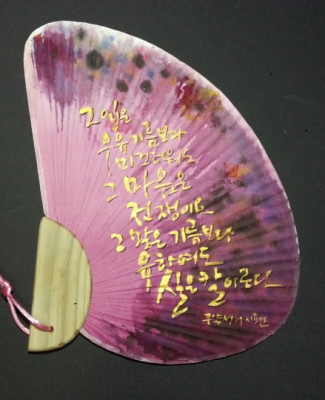 그 입은
우유 기름보다
미끄러워도
그 마음은
전쟁이요
그 말은 기름보다
유하여도
실은 칼이로다
구약성서 시편